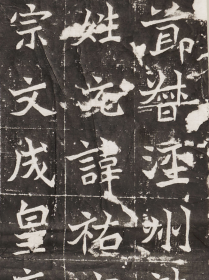 節督涇州
姓元諱祐
宗文成皇